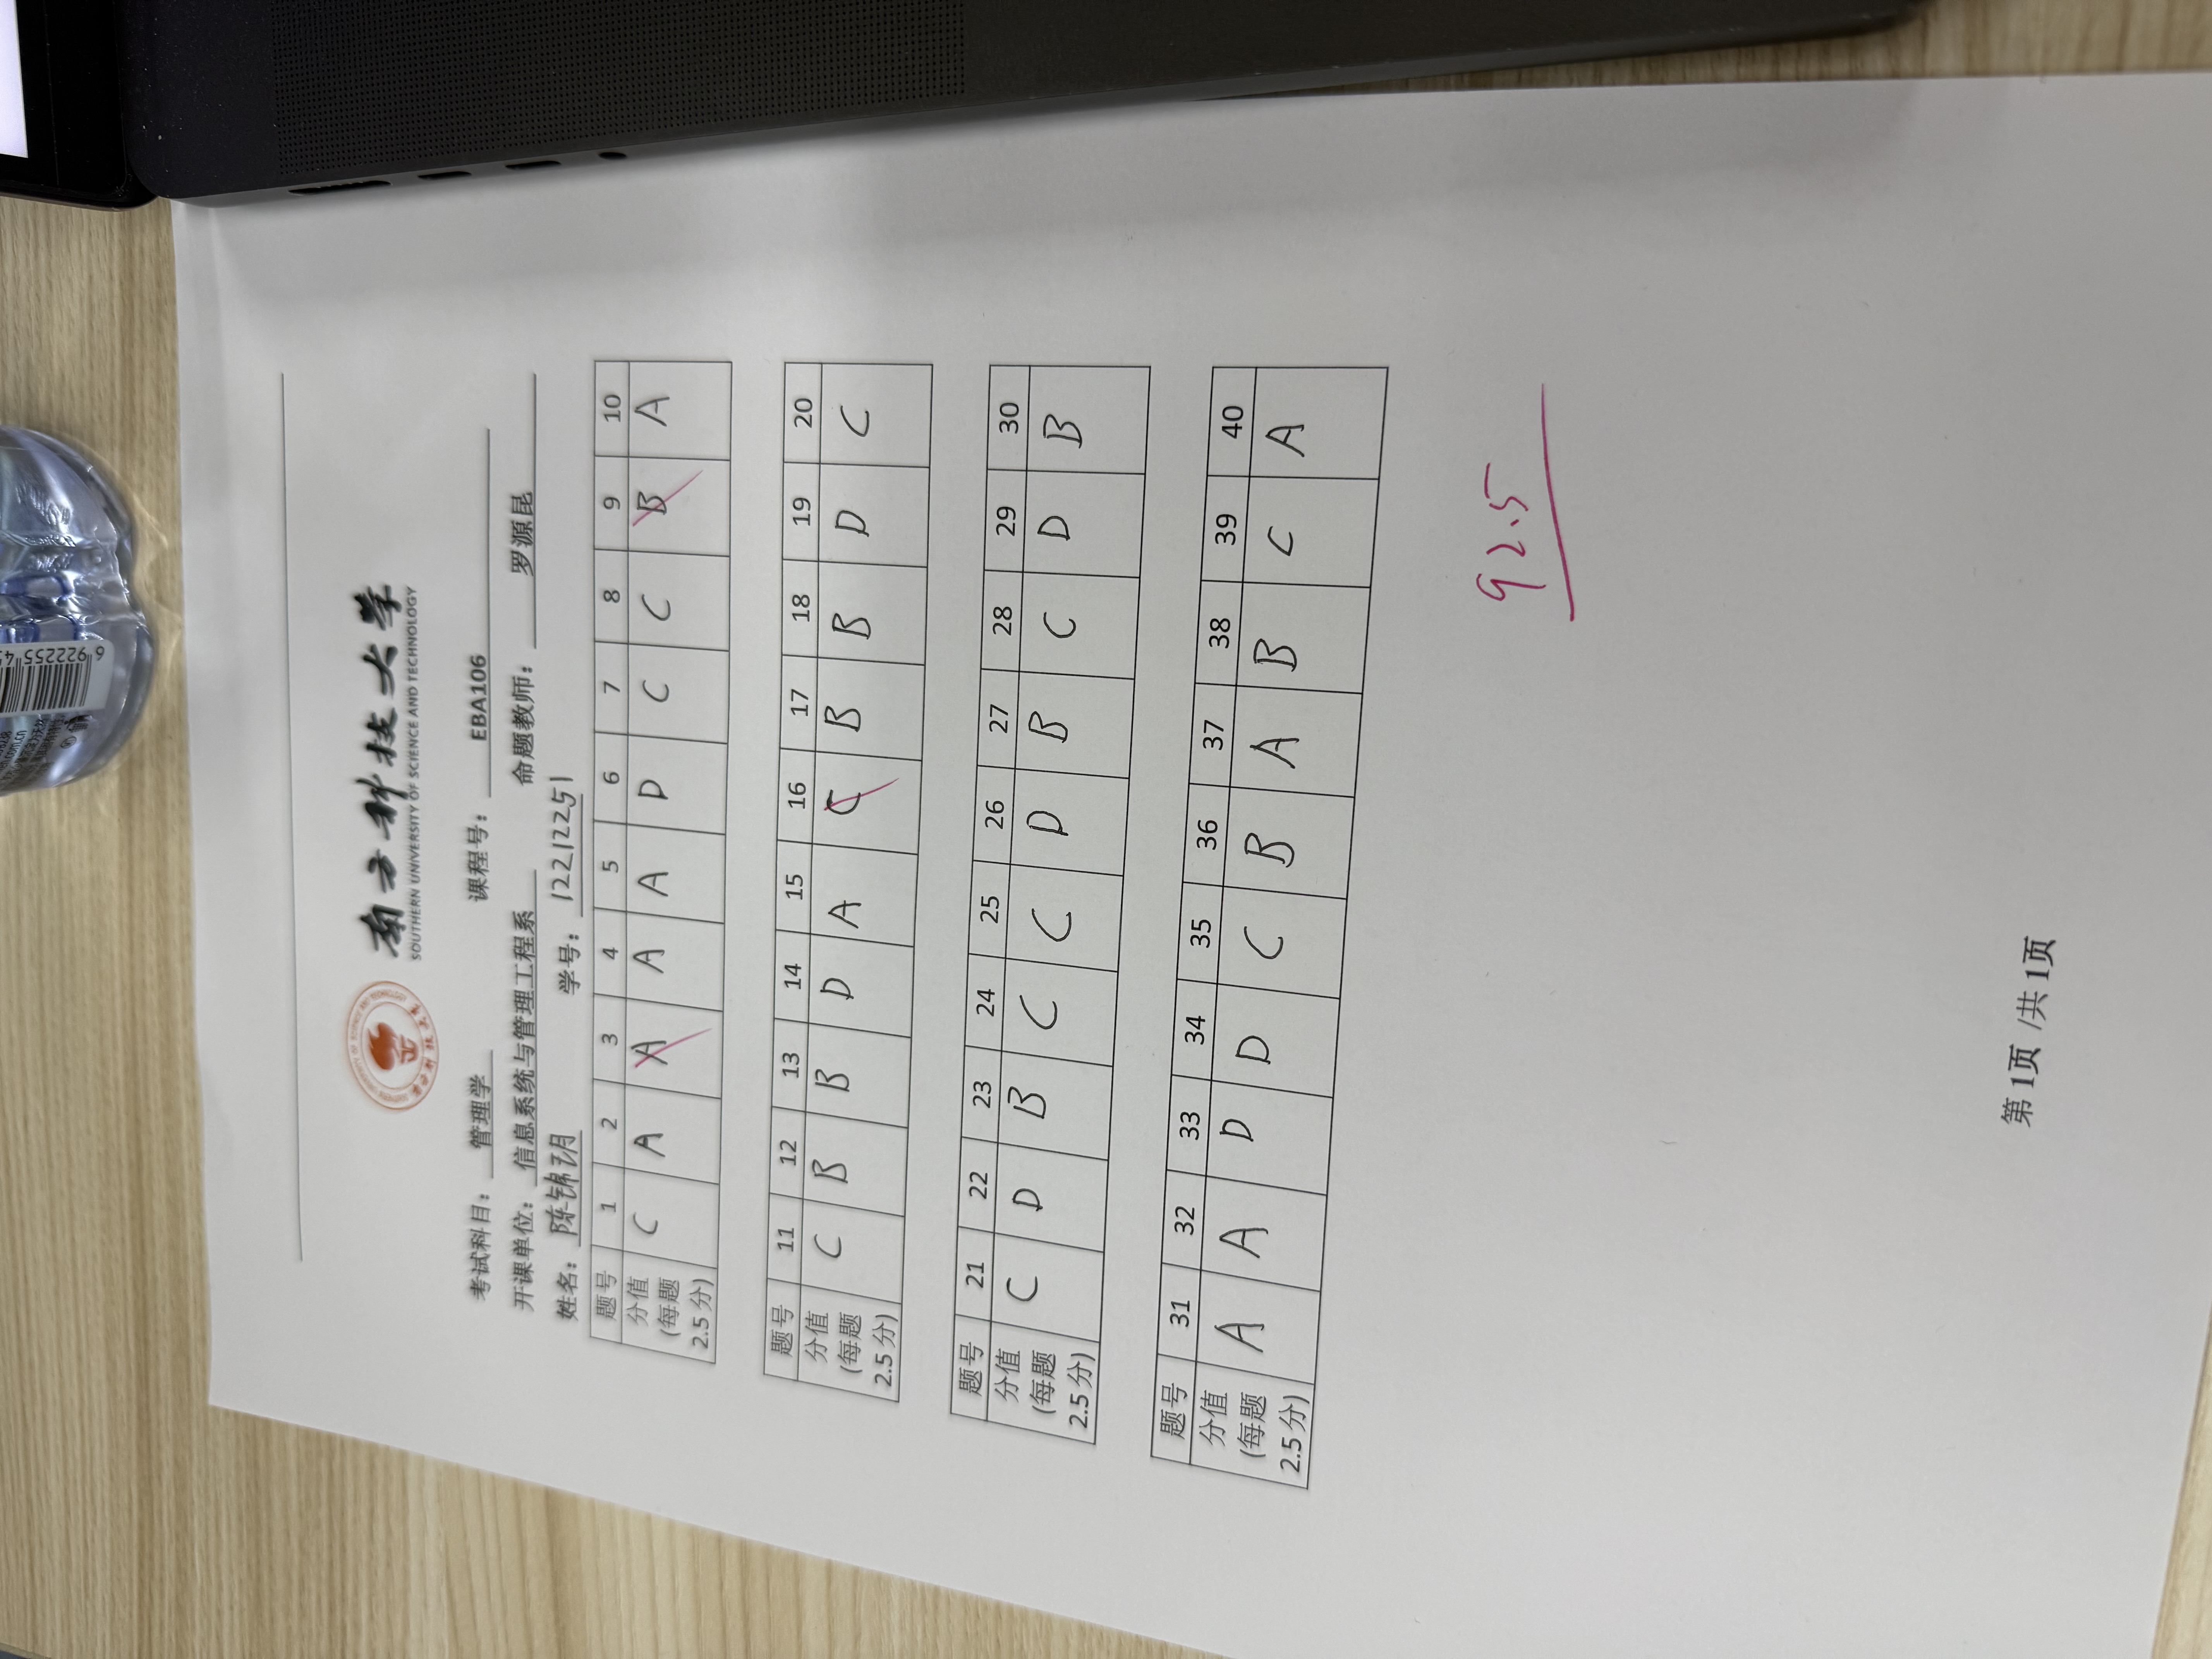 6 922255 4
南方科技大学
SOUTHERN UNIVERSITY OF SCIENCE AND TECHNOLOGY
考试科目： 管理学 课程号： EBA106
开课单位： 信息系统与管理工程系 命题教师： 罗源昆
姓名： 陈锦玥 学号： 12212251
题号 1 2 3 4 5 6 7 8 9 10
分值(每题2.5分) C A A A A D C C B A
题号 11 12 13 14 15 16 17 18 19 20
分值(每题2.5分) C B B D A C B B D C
题号 21 22 23 24 25 26 27 28 29 30
分值(每题2.5分) C D B C C D B C D B
题号 31 32 33 34 35 36 37 38 39 40
分值(每题2.5分) A A D D C B A B C A
92.5
第1页 /共1页